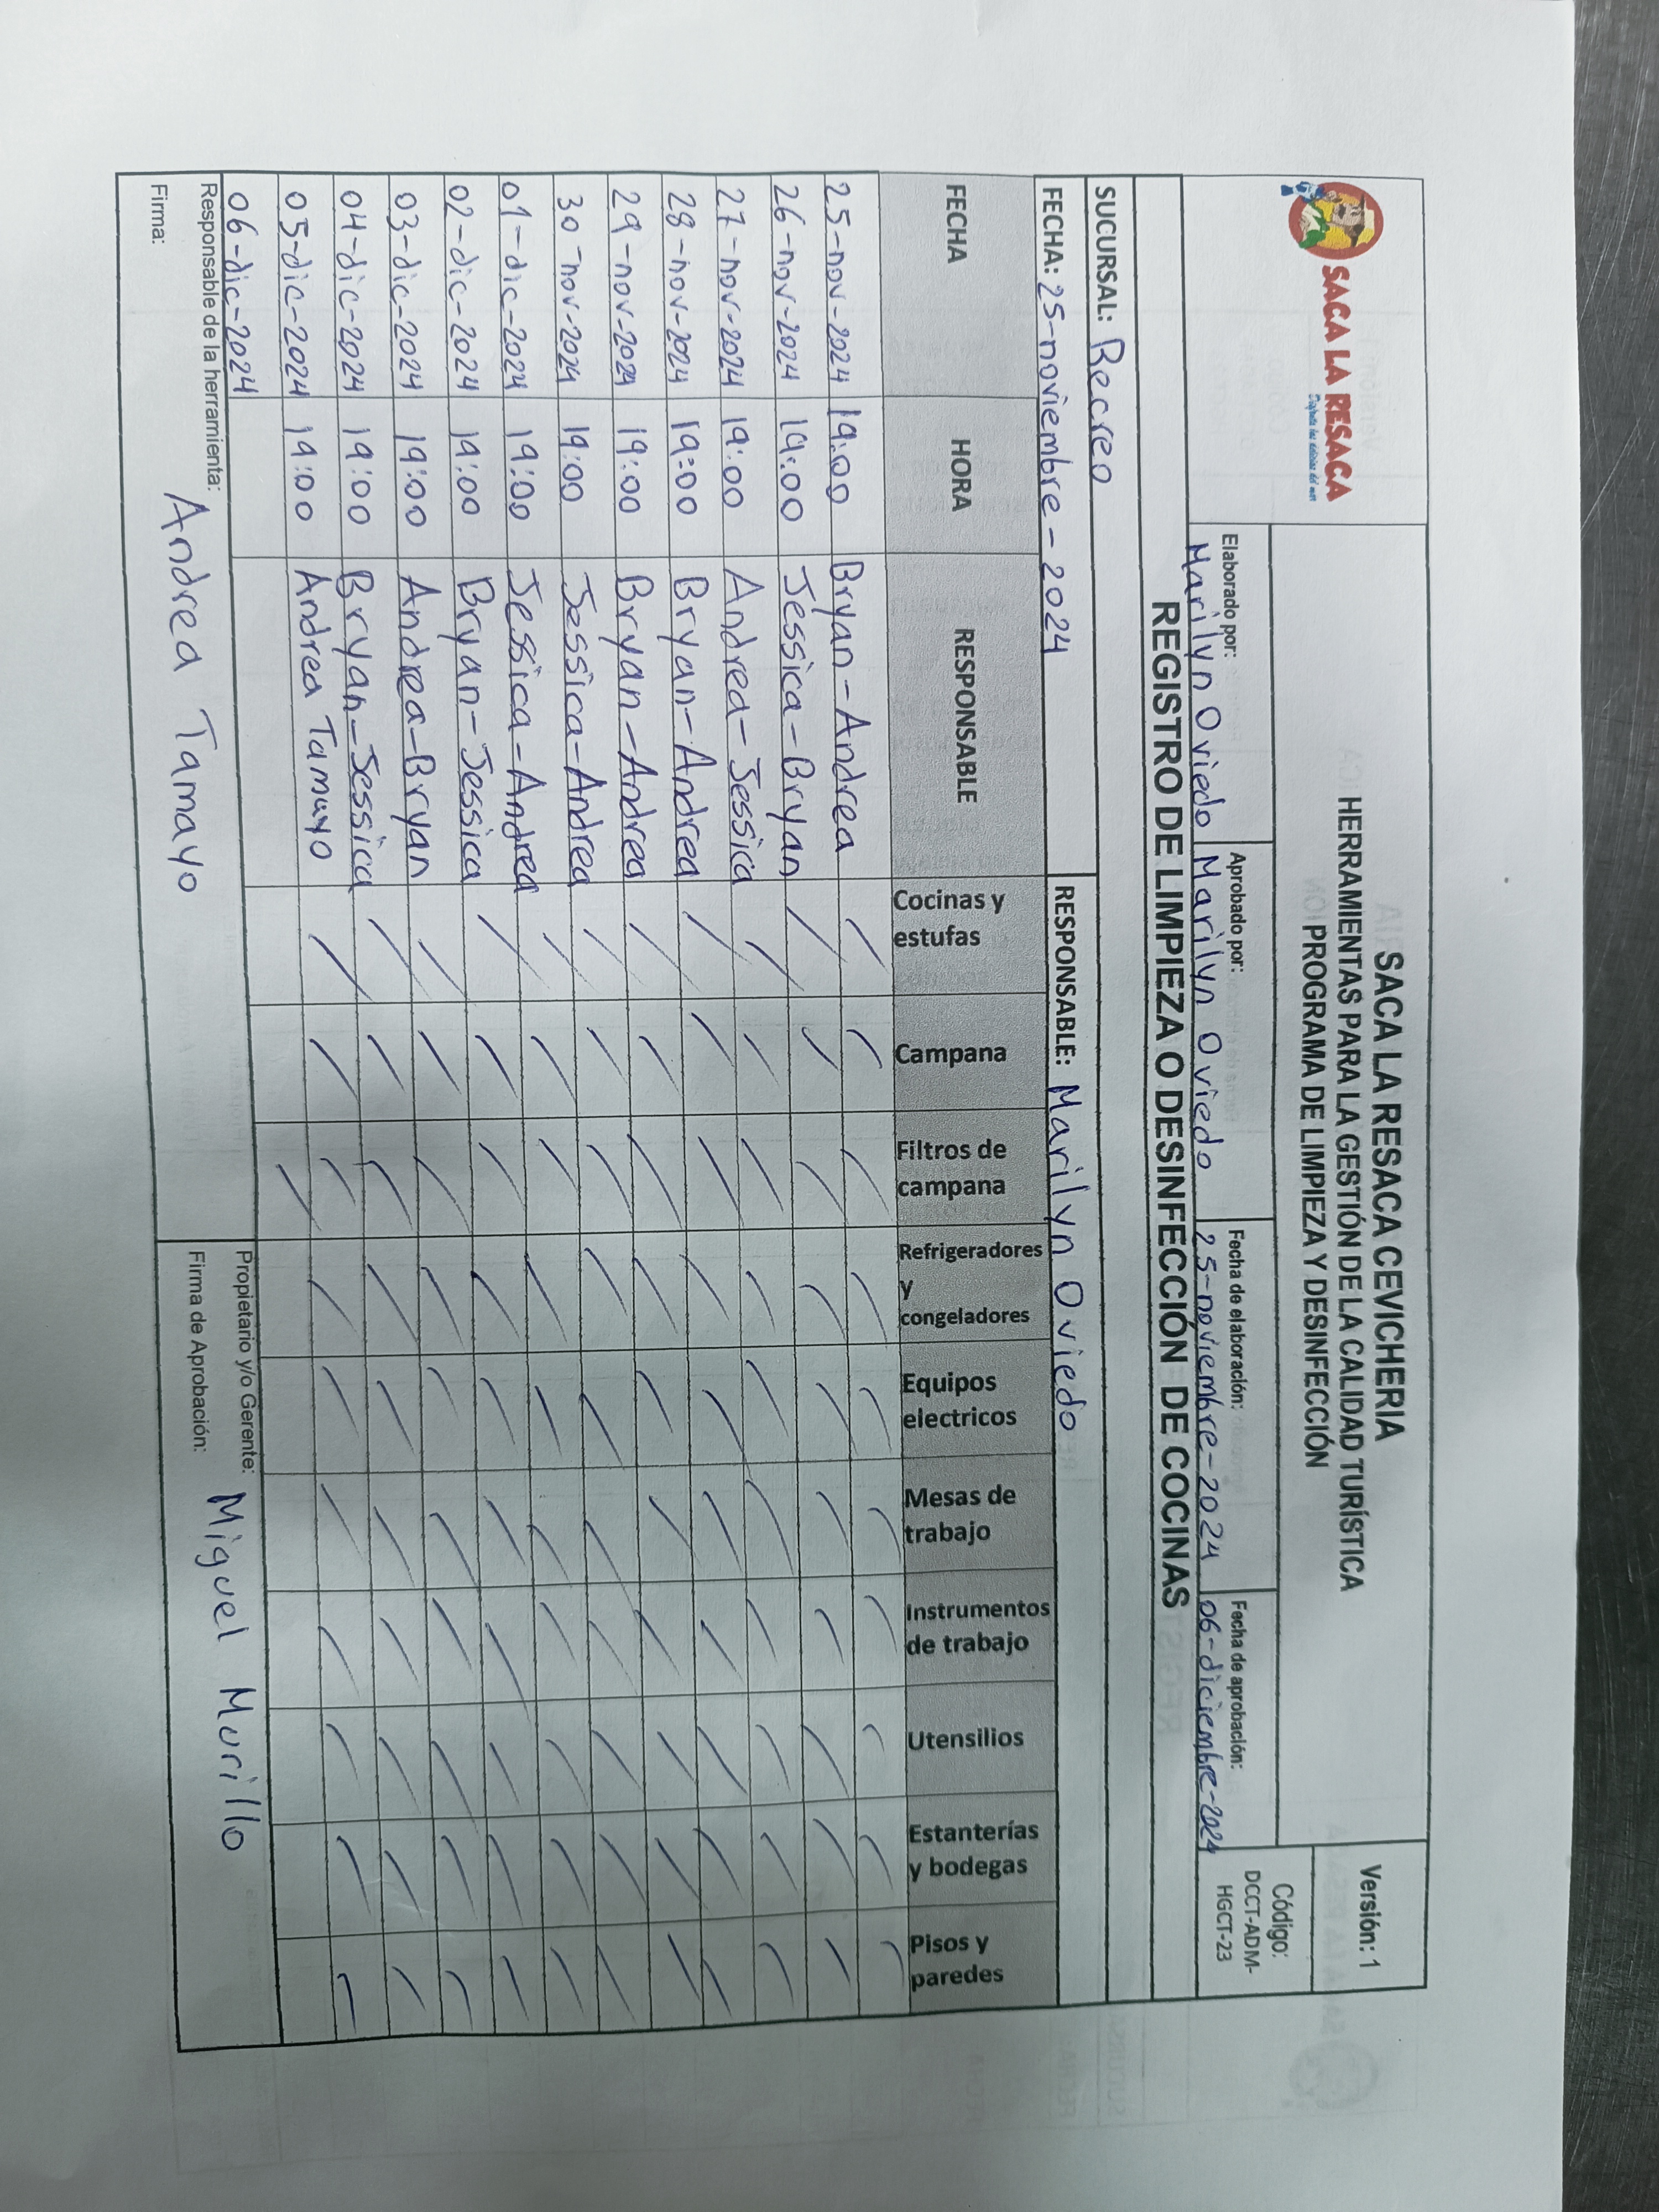 SACA LA RESACA
Disfruta las delicias del mar
SACA LA RESACA CEVICHERIA
HERRAMIENTAS PARA LA GESTIÓN DE LA CALIDAD TURÍSTICA
PROGRAMA DE LIMPIEZA Y DESINFECCIÓN
Versión: 1
Código:
DCCT-ADM-
HGCT-23
Elaborado por: Aprobado por: Fecha de elaboración: Fecha de aprobación:
Marilyn Oviedo Marilyn Oviedo 25-noviembre-2024 06-diciembre-2024
REGISTRO DE LIMPIEZA O DESINFECCIÓN DE COCINAS
SUCURSAL: Recreo
FECHA: 25-noviembre-2024 RESPONSABLE: Marilyn Oviedo
FECHA HORA RESPONSABLE Cocinas y estufas Campana Filtros de campana Refrigeradores y congeladores Equipos electricos Mesas de trabajo Instrumentos de trabajo Utensilios Estanterías y bodegas Pisos y paredes
25-nov-2024 19:00 Bryan-Andrea / / / / / / / / / /
26-nov-2024 19:00 Jessica-Bryan / / / / / / / / / /
27-nov-2024 19:00 Andrea-Jessica / / / / / / / / / /
28-nov-2024 19:00 Bryan-Andrea / / / / / / / / / /
29-nov-2024 19:00 Bryan-Andrea / / / / / / / / / /
30-nov-2024 19:00 Jessica-Andrea / / / / / / / / / /
01-dic-2024 19:00 Jessica-Andrea / / / / / / / / / /
02-dic-2024 19:00 Bryan-Jessica / / / / / / / / / /
03-dic-2024 19:00 Andrea-Bryan / / / / / / / / / /
04-dic-2024 19:00 Bryan-Jessica / / / / / / / / / /
05-dic-2024 19:00 Andrea Tamayo / / / / / / / / / /
06-dic-2024
Responsable de la herramienta: Andrea Tamayo
Firma:
Propietario y/o Gerente: Miguel Murillo
Firma de Aprobación: